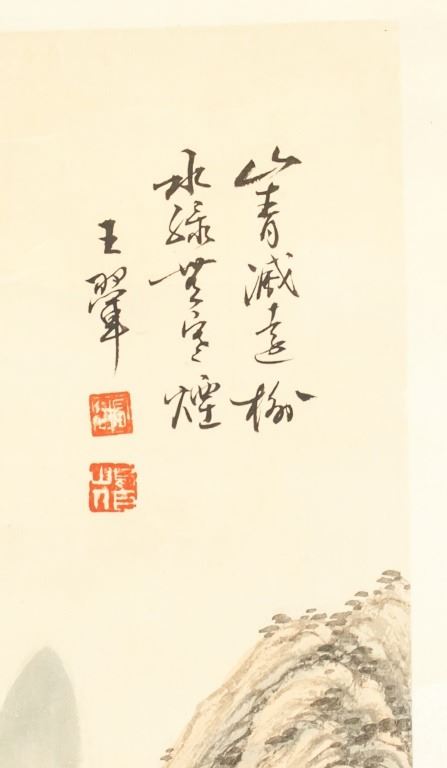 山青滅遠樹
水綠無寒煙
王翬